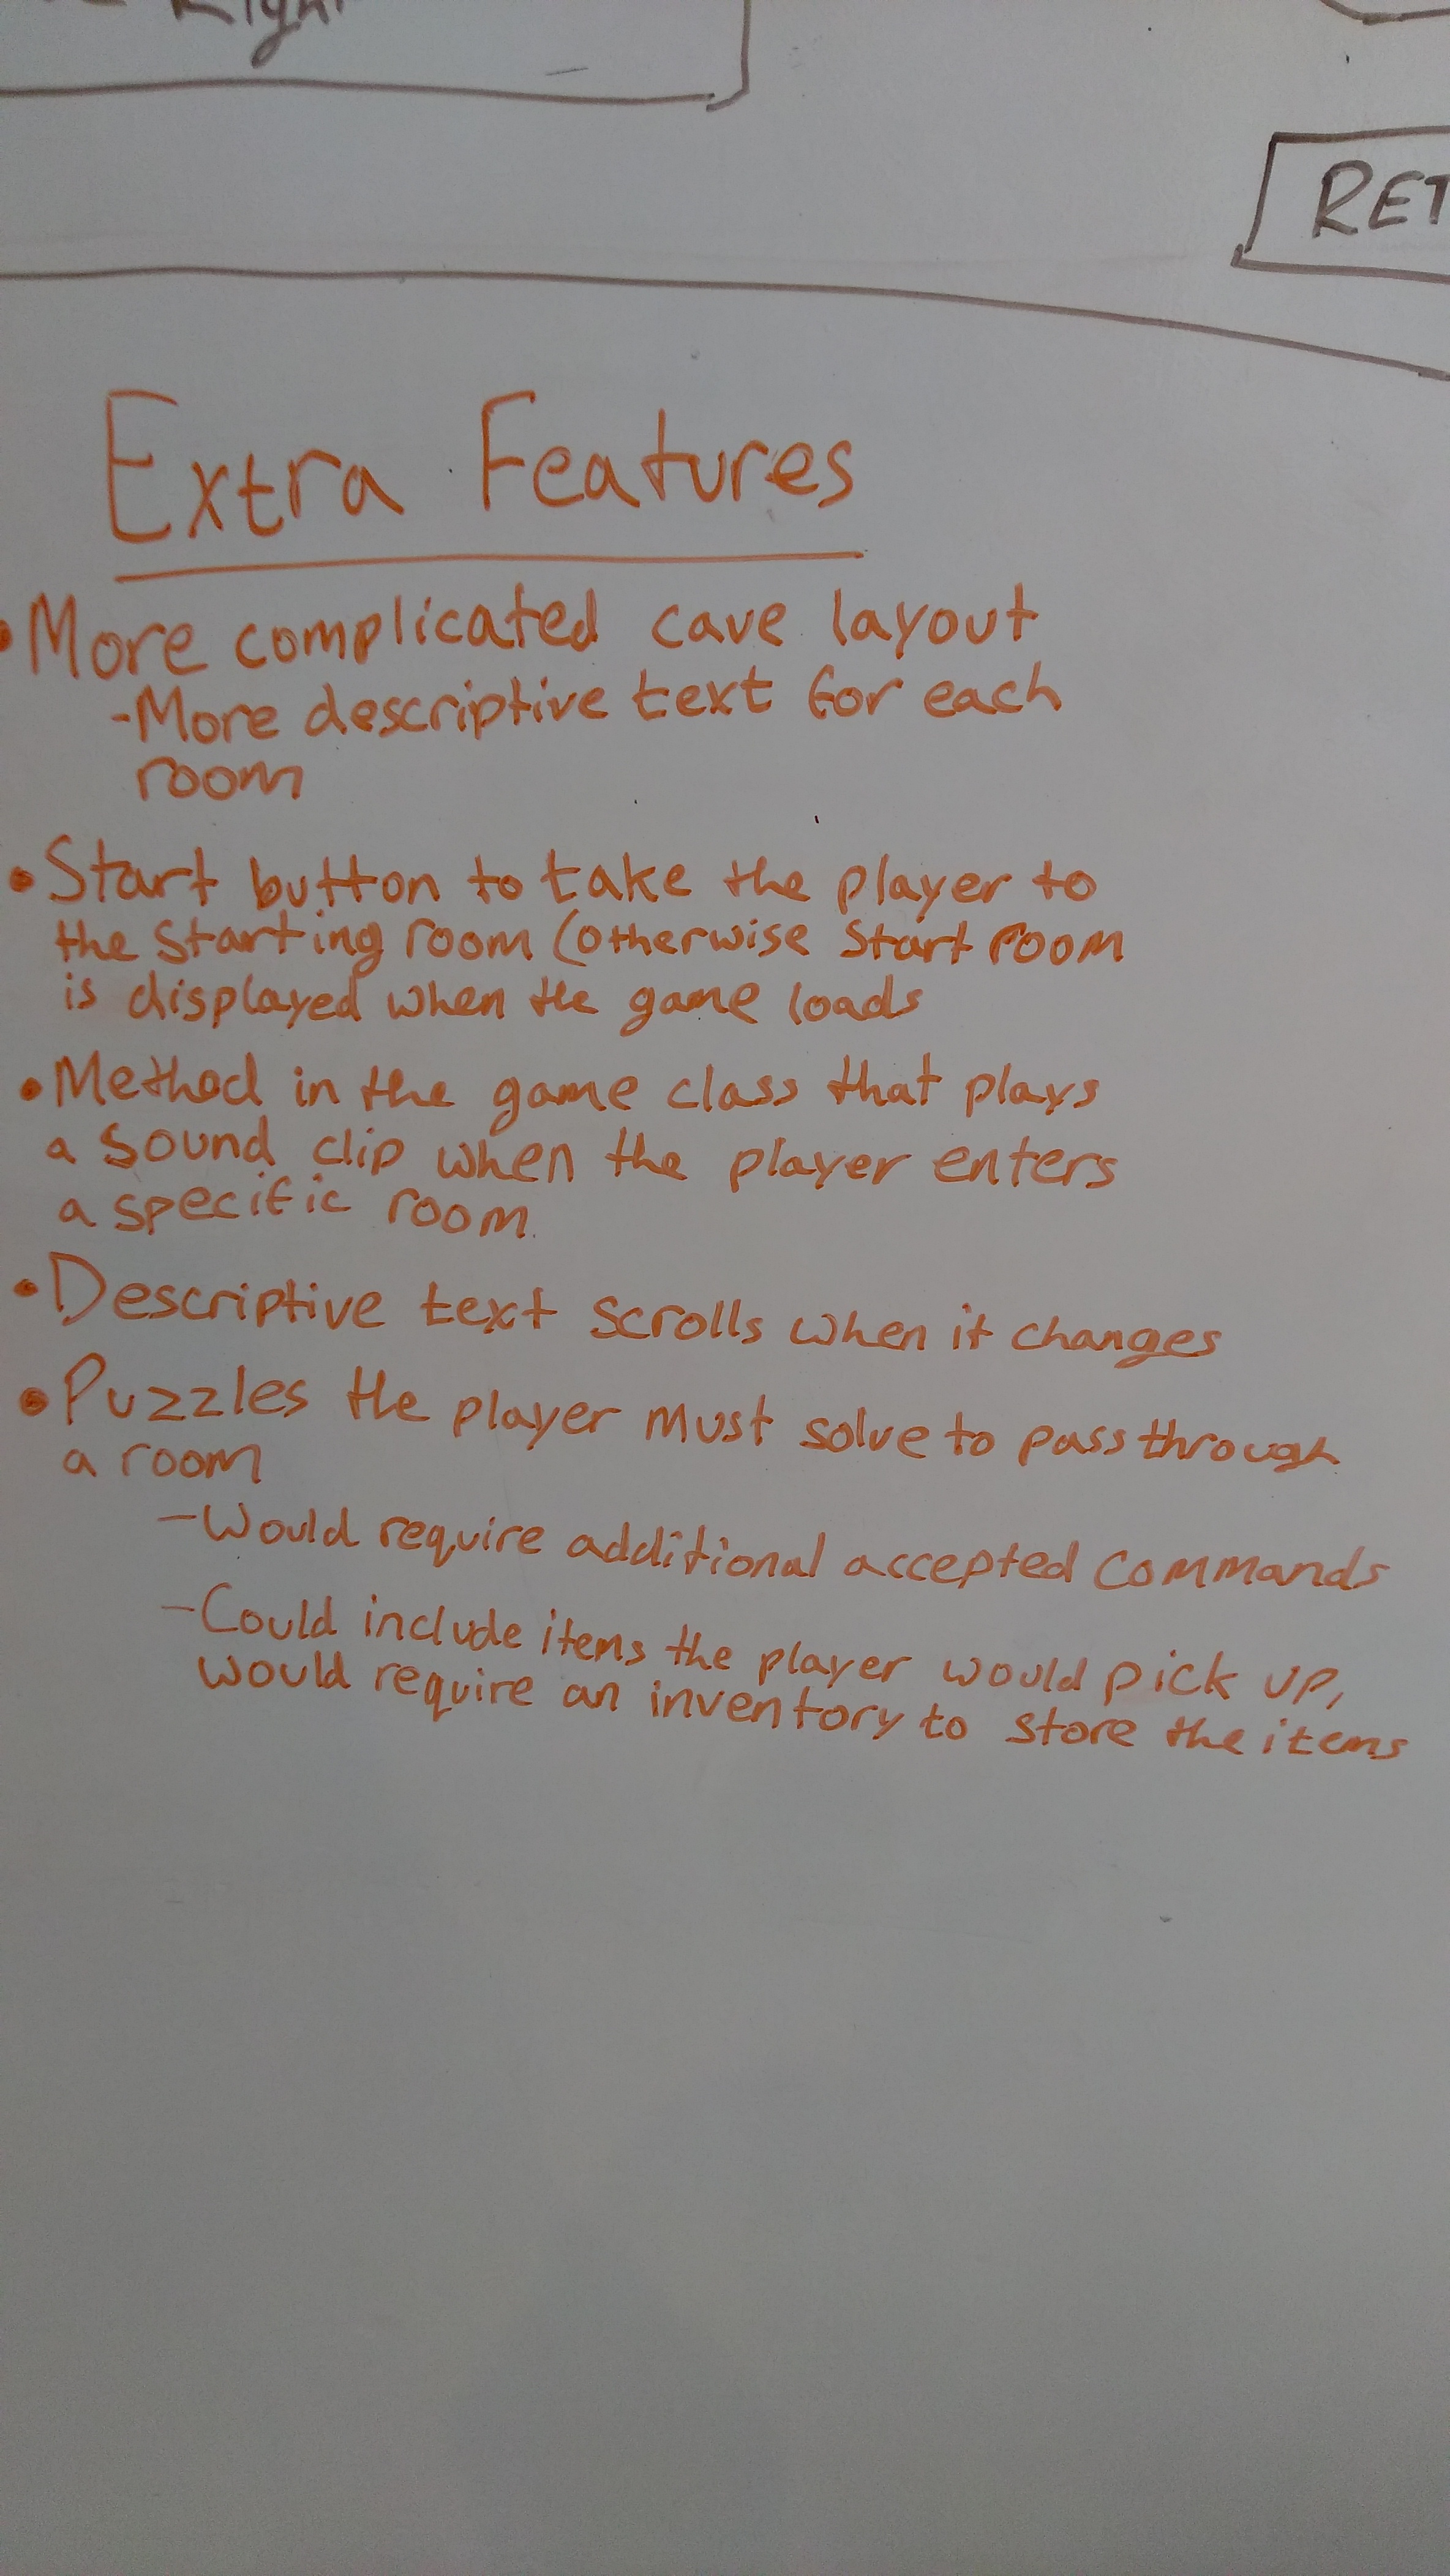 Right
RET
Extra Features
• More complicated cave layout
-More descriptive text for each
room
• Start button to take the player to
the starting room (otherwise start room
is displayed when the game loads
• Method in the game class that plays
a sound clip when the player enters
a specific room.
• Descriptive text scrolls when it changes
• Puzzles the player must solve to pass through
a room
-Would require additional accepted commands
-Could include items the player would pick up,
would require an inventory to store the items